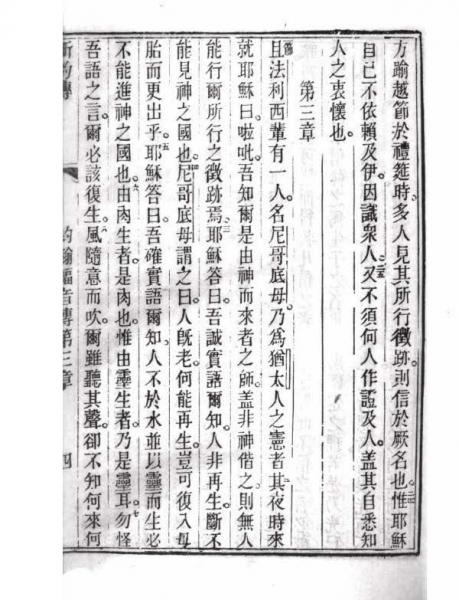 方踰越節於禮筵時多人見其所行徵跡。則信於厥名也。惟耶穌
自己不依賴及伊。因識衆人。又不須何人作證及人。蓋其自悉知
人之衷懷也。
第三章
且法利西輩有一人名尼哥底母。乃爲猶太人之憲者。其夜時來
就耶穌曰。㘄吡。吾知爾是由神而來者之師。蓋非神偕之。則無人
能行爾所行之徵跡焉。耶穌答曰。吾誠實語爾知。人非再生。斷不
能見神之國也。尼哥底母謂之曰。人旣老何能再生。豈可復入母
胎而更出乎。耶穌答曰。吾確實語爾知。人不於水並以靈而生。必
不能進神之國也。由肉生者。是肉也。惟由靈生者。乃是靈耳。勿怪
吾語之言。爾必該復生。風隨意而吹。爾雖聽其聲。卻不知何來何
約翰福音傳第三章 四